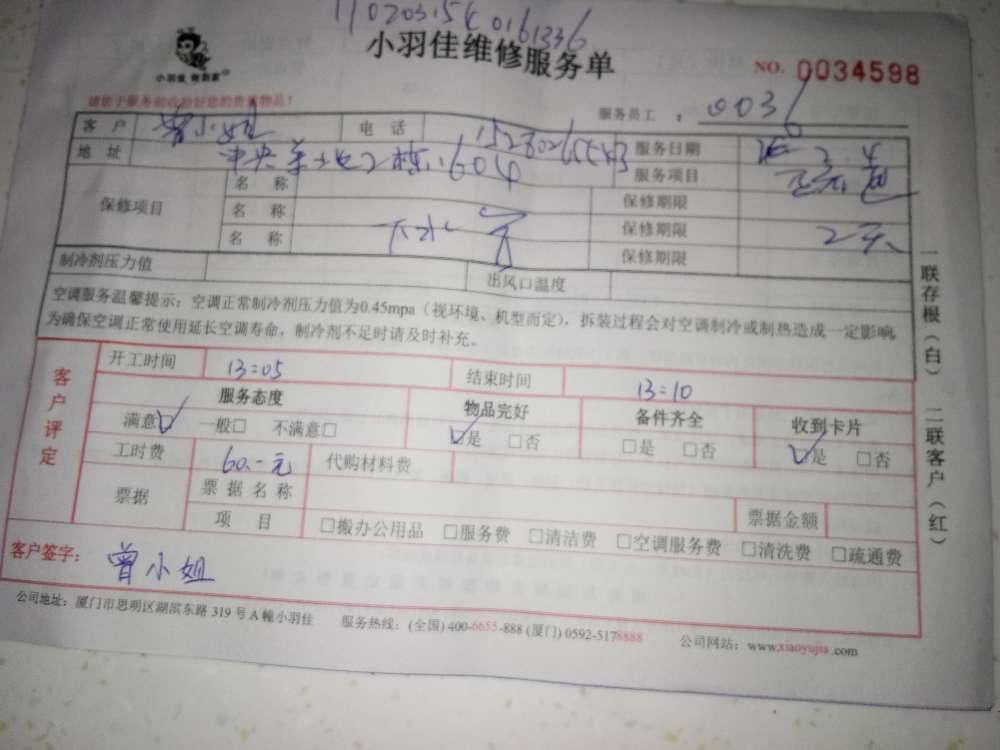 小羽佳维修服务单
小羽佳 到到家
NO. 0034598
请您于服务前收拾好您的贵重物品!
服务员工 : 0036
客户 曾小姐 电话 服务日期
地址 604 服务项目
保修项目 名称 保修期限
名称 下水 保修期限 2天
名称 保修期限
制冷剂压力值 出风口温度
空调服务温馨提示:空调正常制冷剂压力值为0.45mpa(视环境、机型而定),拆装过程会对空调制冷或制热造成一定影响,
为确保空调正常使用延长空调寿命,制冷剂不足时请及时补充。
客户评定
开工时间 13:05 结束时间 13:10
服务态度 物品完好 备件齐全 收到卡片
满意☑ 一般□ 不满意□ ☑是 □否 □是 □否 ☑是 □否
工时费 60.-元 代购材料费
票据 票据名称 票据金额
项目 □搬办公用品 □服务费 □清洁费 □空调服务费 □清洗费 □疏通费
客户签字: 曾小姐
公司地址:厦门市思明区湖滨东路 319 号 A 幢小羽佳 服务热线:(全国) 400-6655-888 (厦门) 0592-5178888 公司网站:www.xiaoyujia.com
一联存根(白) 二联客户(红)